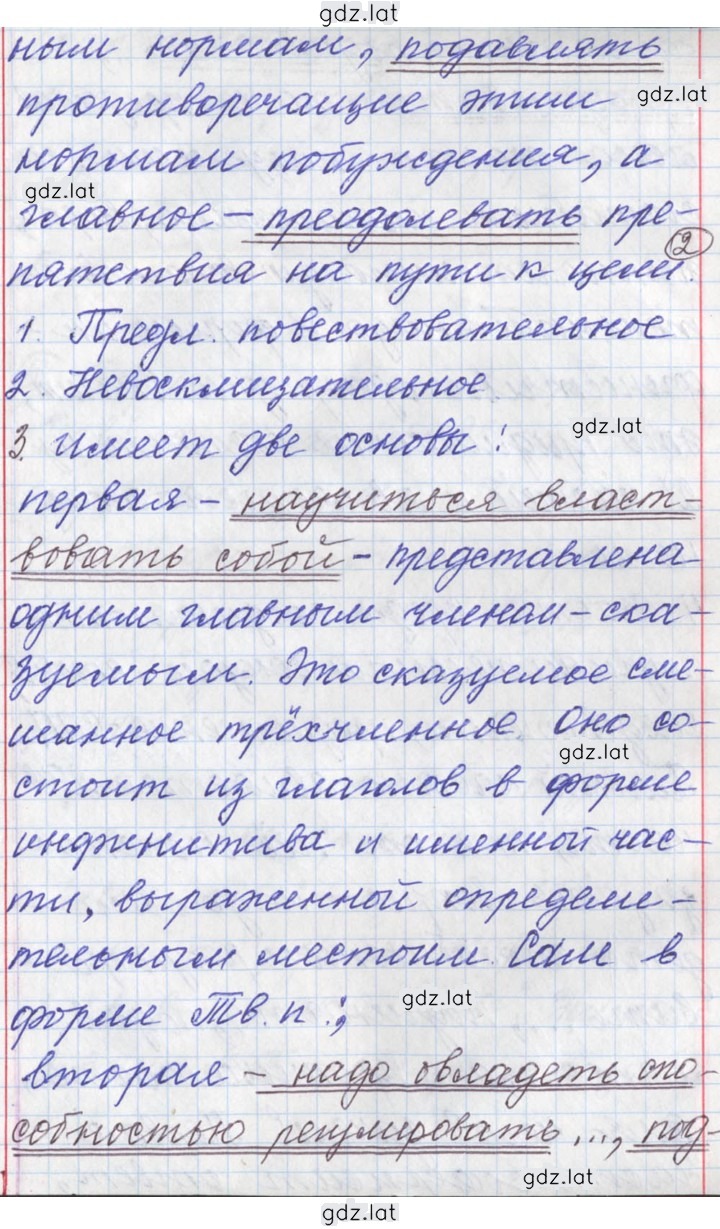 gdz.lat
ным нормам, подавлять
gdz.lat
противоречащие этим
нормам побуждения, а
gdz.lat
главное – преодолевать пре-
2
пятствия на пути к цели.
1. Предл. повествовательное
2. Невосклицательное
gdz.lat
3. имеет две основы:
первая – научиться власт-
вовать собой – представлена
одним главным членом – ска-
зуемым. Это сказуемое сме-
шанное трёхчленное. Оно со-
gdz.lat
стоит из глаголов в форме
инфинитива и именной час-
ти, выраженной определи-
тельным местоим. Сам в
gdz.lat
форме Тв. п.;
вторая – надо овладеть спо-
собностью регулировать ..., под-
gdz.lat
gdz.lat